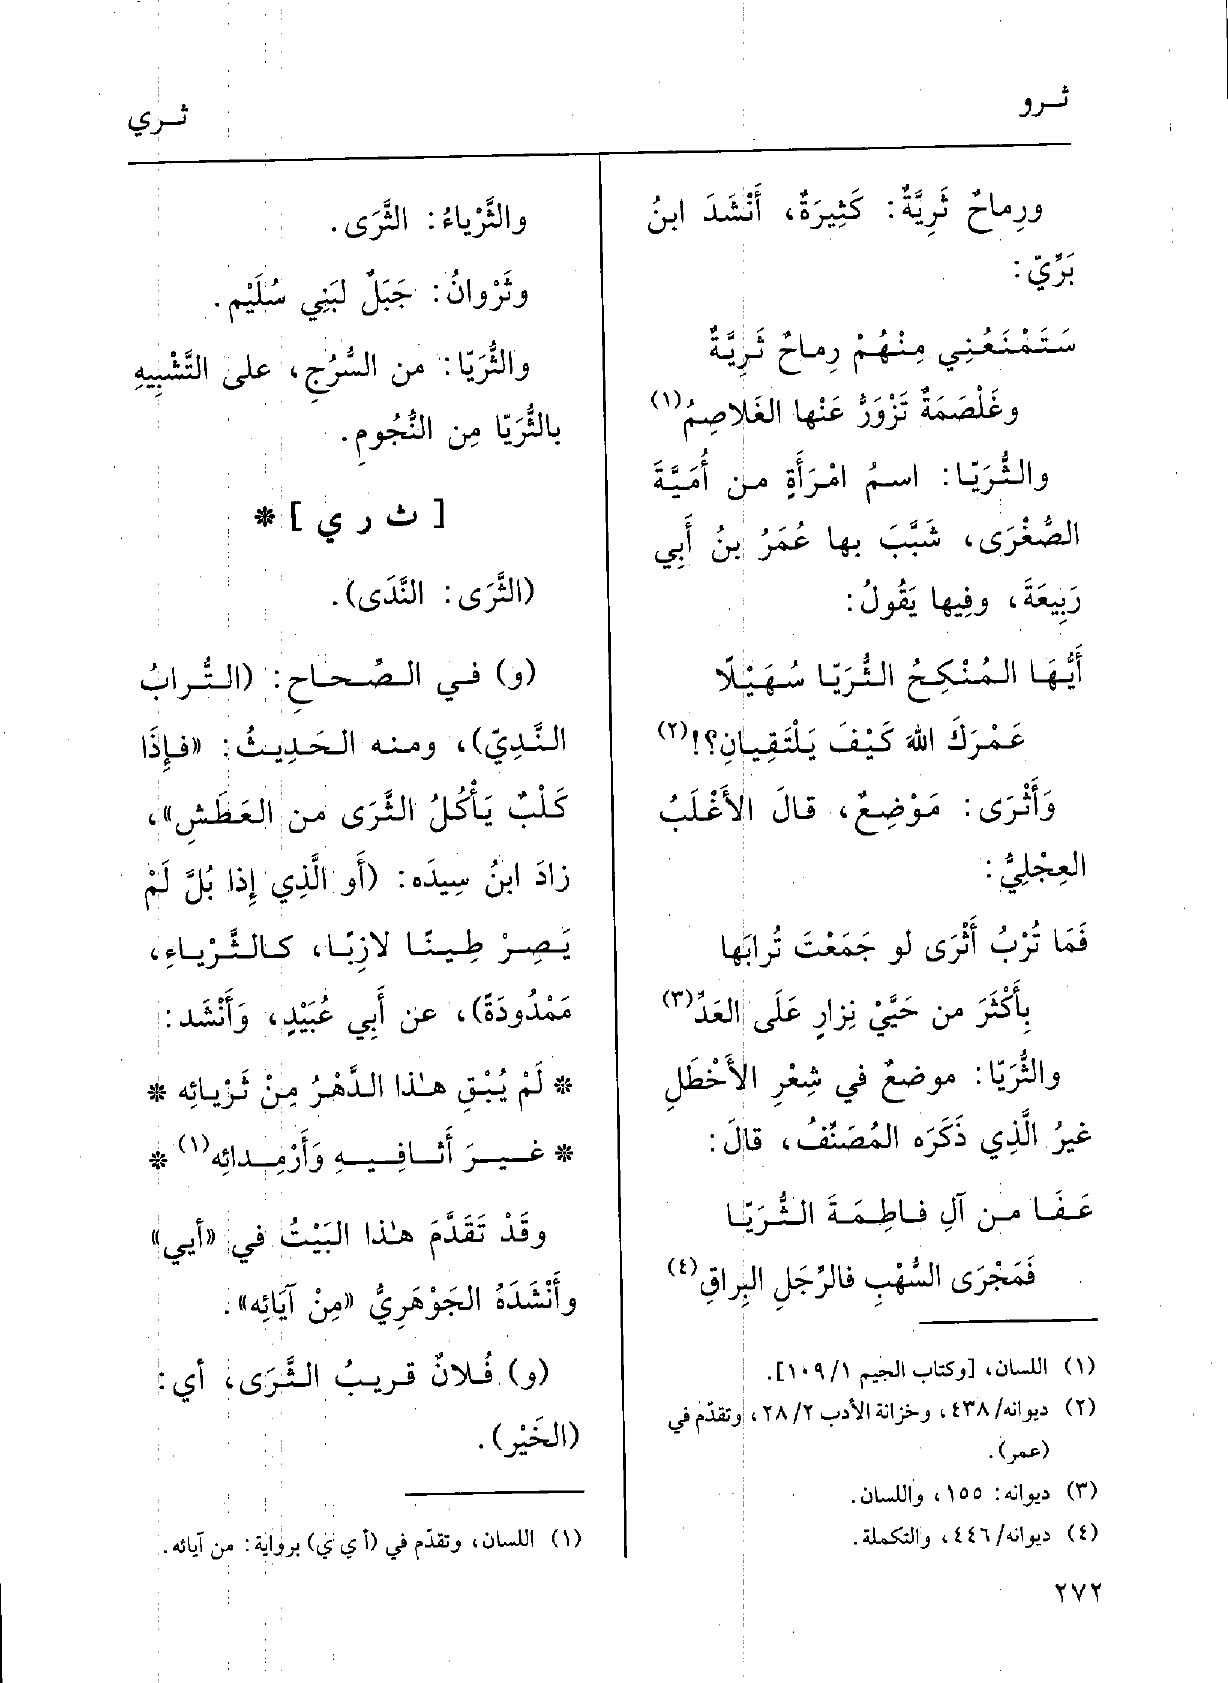 ثرو
ثري
ورِماحٌ ثَرِيَّةٌ: كَثِيرَةٌ، أَنْشَدَ ابنُ
بَرِّيّ:
سَتَمْنَعُنِي مِنْهُمْ رِماحٌ ثَرِيَّةٌ
وغَلْصَمَةٌ تَزْوَرُّ عَنْها الغَلاصِمُ(١)
والثُّرَيّا: اسمُ امْرَأَةٍ من أُمَيَّةَ
الصُّغْرَى، شَبَّبَ بها عُمَرُ بنُ أَبِي
رَبِيعَةَ، وفِيها يَقُولُ:
أَيُّهَا المُنْكِحُ الثُّرَيّا سُهَيْلًا
عَمْرَكَ اللهَ كَيْفَ يَلْتَقِيانِ؟!(٢)
وَأَثْرَى: مَوْضِعٌ، قالَ الأَغْلَبُ
العِجْلِيُّ:
فَمَا تُرْبُ أَثْرَى لو جَمَعْتَ تُرابَها
بِأَكْثَرَ من حَيَّيْ نِزارٍ عَلَى العَدِّ(٣)
والثُّرَيّا: موضعٌ في شِعْرِ الأَخْطَلِ
غيرُ الَّذِي ذَكَرَه المُصَنِّفُ، قالَ:
عَفَا من آلِ فاطِمَةَ الثُّرَيّا
فَمَجْرَى السُّهْبِ فالرِّجَلِ البِراقِ(٤)
(١) اللسان، [وكتاب الجيم ١٠٩/١].
(٢) ديوانه/٤٣٨، وخزانة الأدب ٢٨/٢، وتقدّم في
(عمر).
(٣) ديوانه: ١٥٥، واللسان.
(٤) ديوانه/٤٤٦، والتكملة.
والثَّرْياءُ: الثَّرَى.
وثَرْوانُ: جَبَلٌ لبَنِي سُلَيْم.
والثُّرَيّا: من السُّرُجِ، على التَّشْبِيهِ
بالثُّرَيّا مِن النُّجُومِ.
[ ث ر ي ] *
(الثَّرَى: النَّدَى).
(و) في الصِّحاحِ: (التُّرابُ
النَّدِيّ)، ومنه الحَدِيثُ: «فإِذَا
كَلْبٌ يَأْكُلُ الثَّرَى من العَطَشِ»،
زادَ ابنُ سِيدَه: (أَو الَّذِي إِذا بُلَّ لَمْ
يَصِرْ طِينًا لازِبًا، كالثَّرْياءِ،
مَمْدُودَةً)، عن أَبِي عُبَيْدٍ، وَأَنْشَد:
* لَمْ يُبْقِ هٰذا الدَّهْرُ مِنْ ثَرْيائِه *
* غيرَ أَثافِيهِ وَأَرْمِدائِه(١) *
وقَدْ تَقَدَّمَ هٰذا البَيْتُ في «أيي»
وأَنْشَدَهُ الجَوْهَرِيُّ «مِنْ آيَائِه».
(و) فُلانٌ قريبُ الثَّرَى، أي:
(الخَيْر).
(١) اللسان، وتقدّم في (أ ي ي) برواية: من آيائه.
٢٧٢